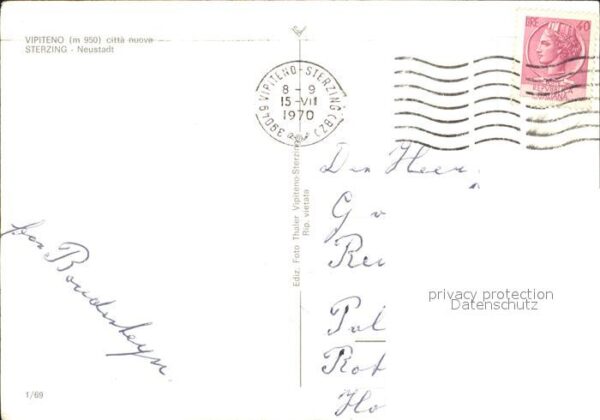 VIPITENO (m 950) città nuova
STERZING - Neustadt
39049 VIPITENO-STERZING (BZ)
8 - 9
15-VII
1970
LIRE 40
Ediz. Foto Thaler Vipiteno-Sterzing
Rip. vietata
Den Heer
G
Re
Pul
Rot
Ho
privacy protection
Datenschutz
1/69